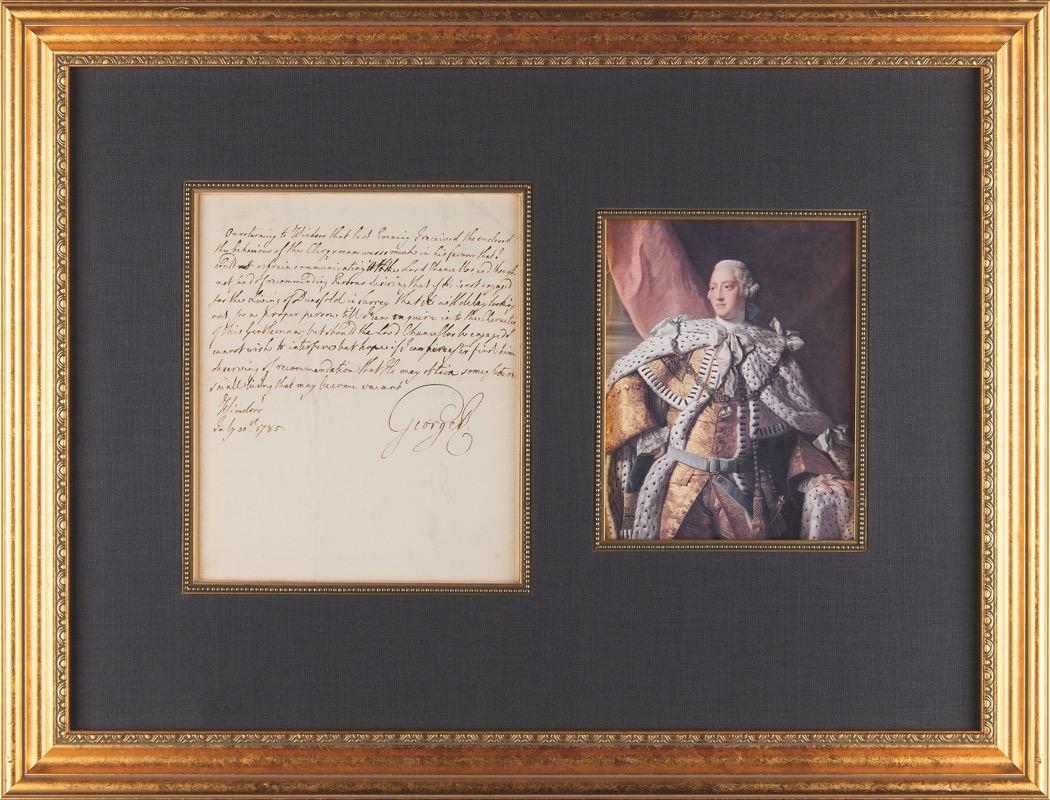 On returning to Windsor that last Evening I received the enclosed
the behaviour of the Clergyman was so much in his favour that I
could not refrain communicating it to the Lord Chancellor and though
not fond of recommending Persons desiring that if He is not engaged
for the Living of Dunsfold in Surrey that He will delay looking
out for a proper person till I can enquire into the Character
of this Gentleman; but should the Lord Chancellor be engaged I
cannot wish to interfere but hope if I can hereafter find him
deserving of recommendation that He may obtain some other
small living that may become vacant
Windsor
July 30th. 1785.
George R.